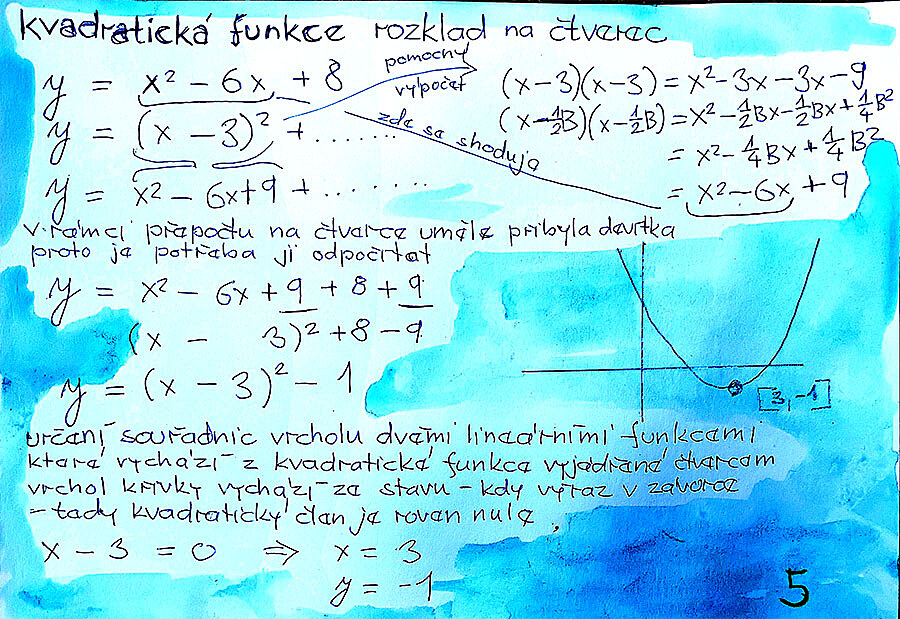 kvadratická funkce rozklad na čtverec
y = x² - 6x + 8
pomocný
výpočet
(x-3)(x-3) = x² - 3x - 3x - 9
y = (x - 3)² + .......
zde se shodují
(x-½B)(x-½B) = x² - ½Bx - ½Bx + ¼B²
= x² - ¼Bx + ¼B²
y = x² - 6x+9 + .......
= x² - 6x + 9
v rámci přepočtu na čtverce uměle přibyla devítka
proto je potřeba ji odpočítat
y = x² - 6x + 9 + 8 + 9
(x - 3)² + 8 - 9
y = (x - 3)² - 1
[3,-1]
určení souřadnic vrcholu dvěmi lineárními funkcemi
které vychází z kvadratické funkce vyjádřené čtvercem
vrchol křivky vychází ze stavu - kdy výraz v závorce
- tedy kvadratický člen je roven nule
x - 3 = 0 ⇒ x = 3
y = -1
5